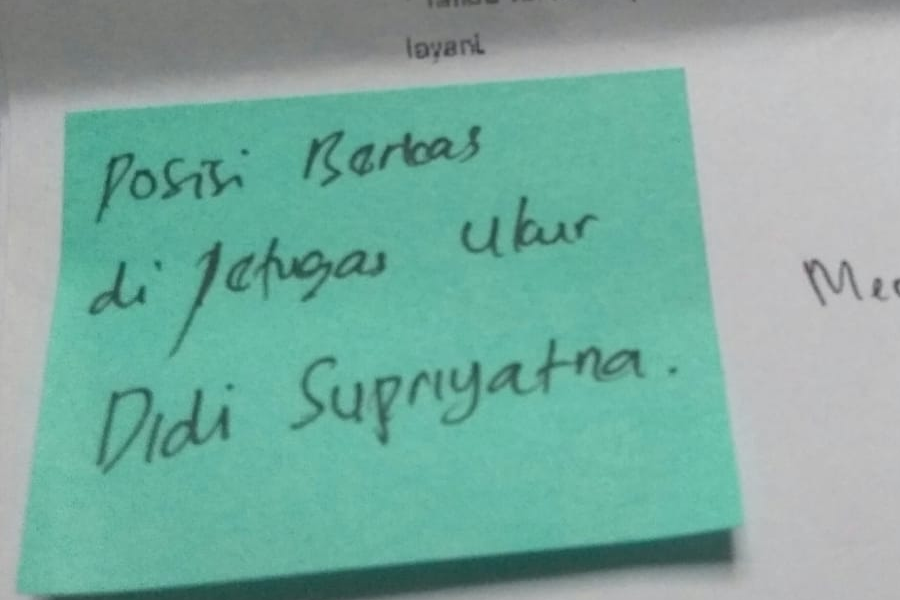 layani.
Posisi Berkas
di petugas ukur
Didi Supriyatna.